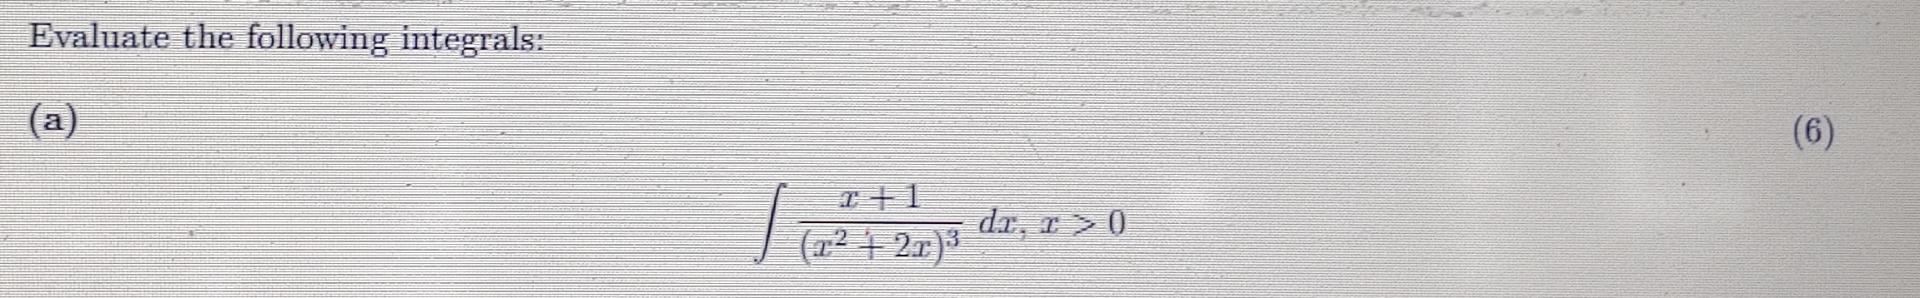 Evaluate the following integrals:
(a)
(6)
∫ x + 1 / (x² + 2x)³ dx, x > 0